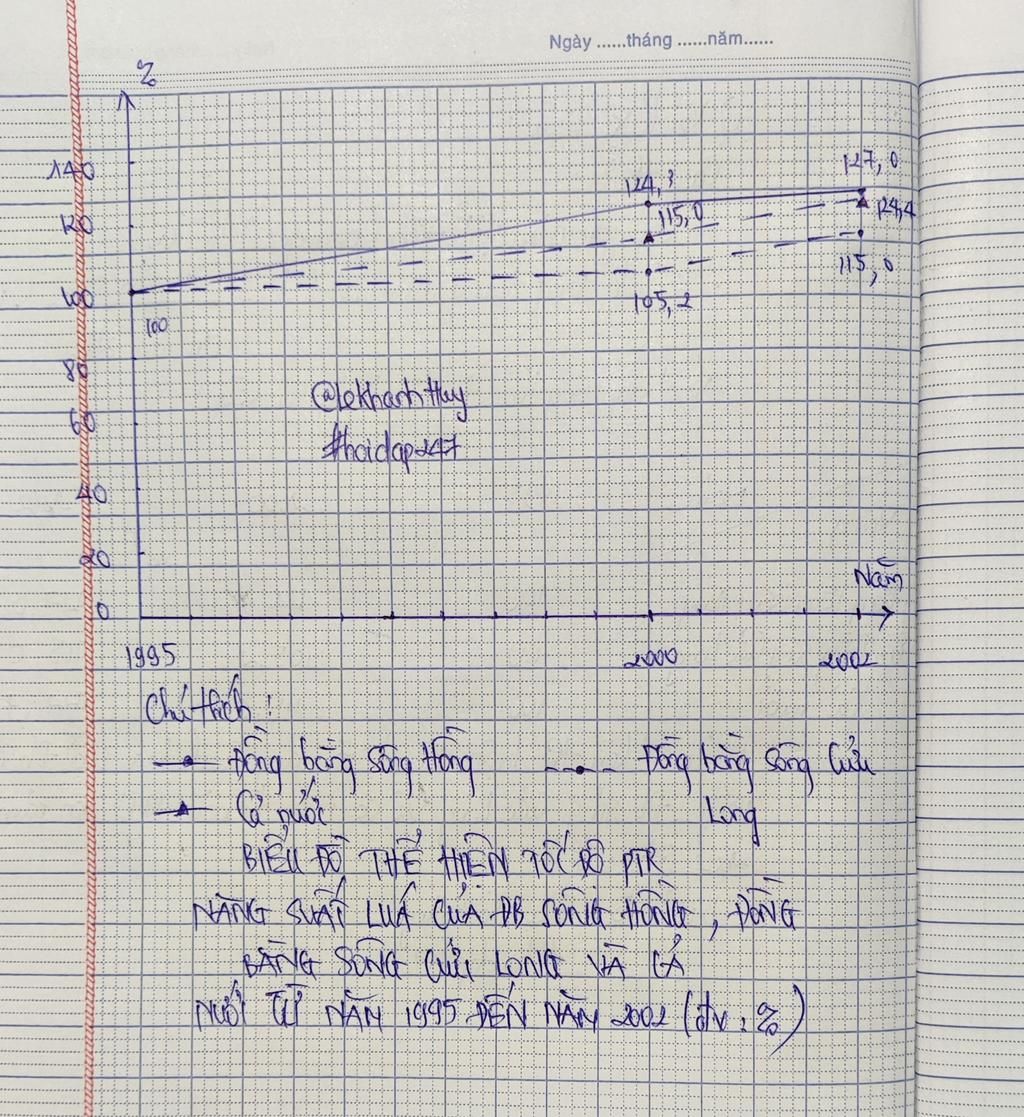 Ngày ......tháng ......năm......
%
140
127,0
124,3
120
115,0
124,4
115,0
100
105,2
100
80
@lekhanhHuy
60
#hoidap247
40
20
Năm
0
1995
2000
2002
Chú thích:
Đồng bằng sông Hồng
Đồng bằng sông Cửu
Cả nước
Long
BIỂU ĐỒ THỂ HIỆN TỐC ĐỘ PTR
NĂNG SUẤT LUÁ CỦA ĐB SÔNG HỒNG, ĐỒNG
BẰNG SÔNG CỬU LONG VÀ CẢ
NƯỚC TỪ NĂM 1995 ĐẾN NĂM 2002 (đv: %)